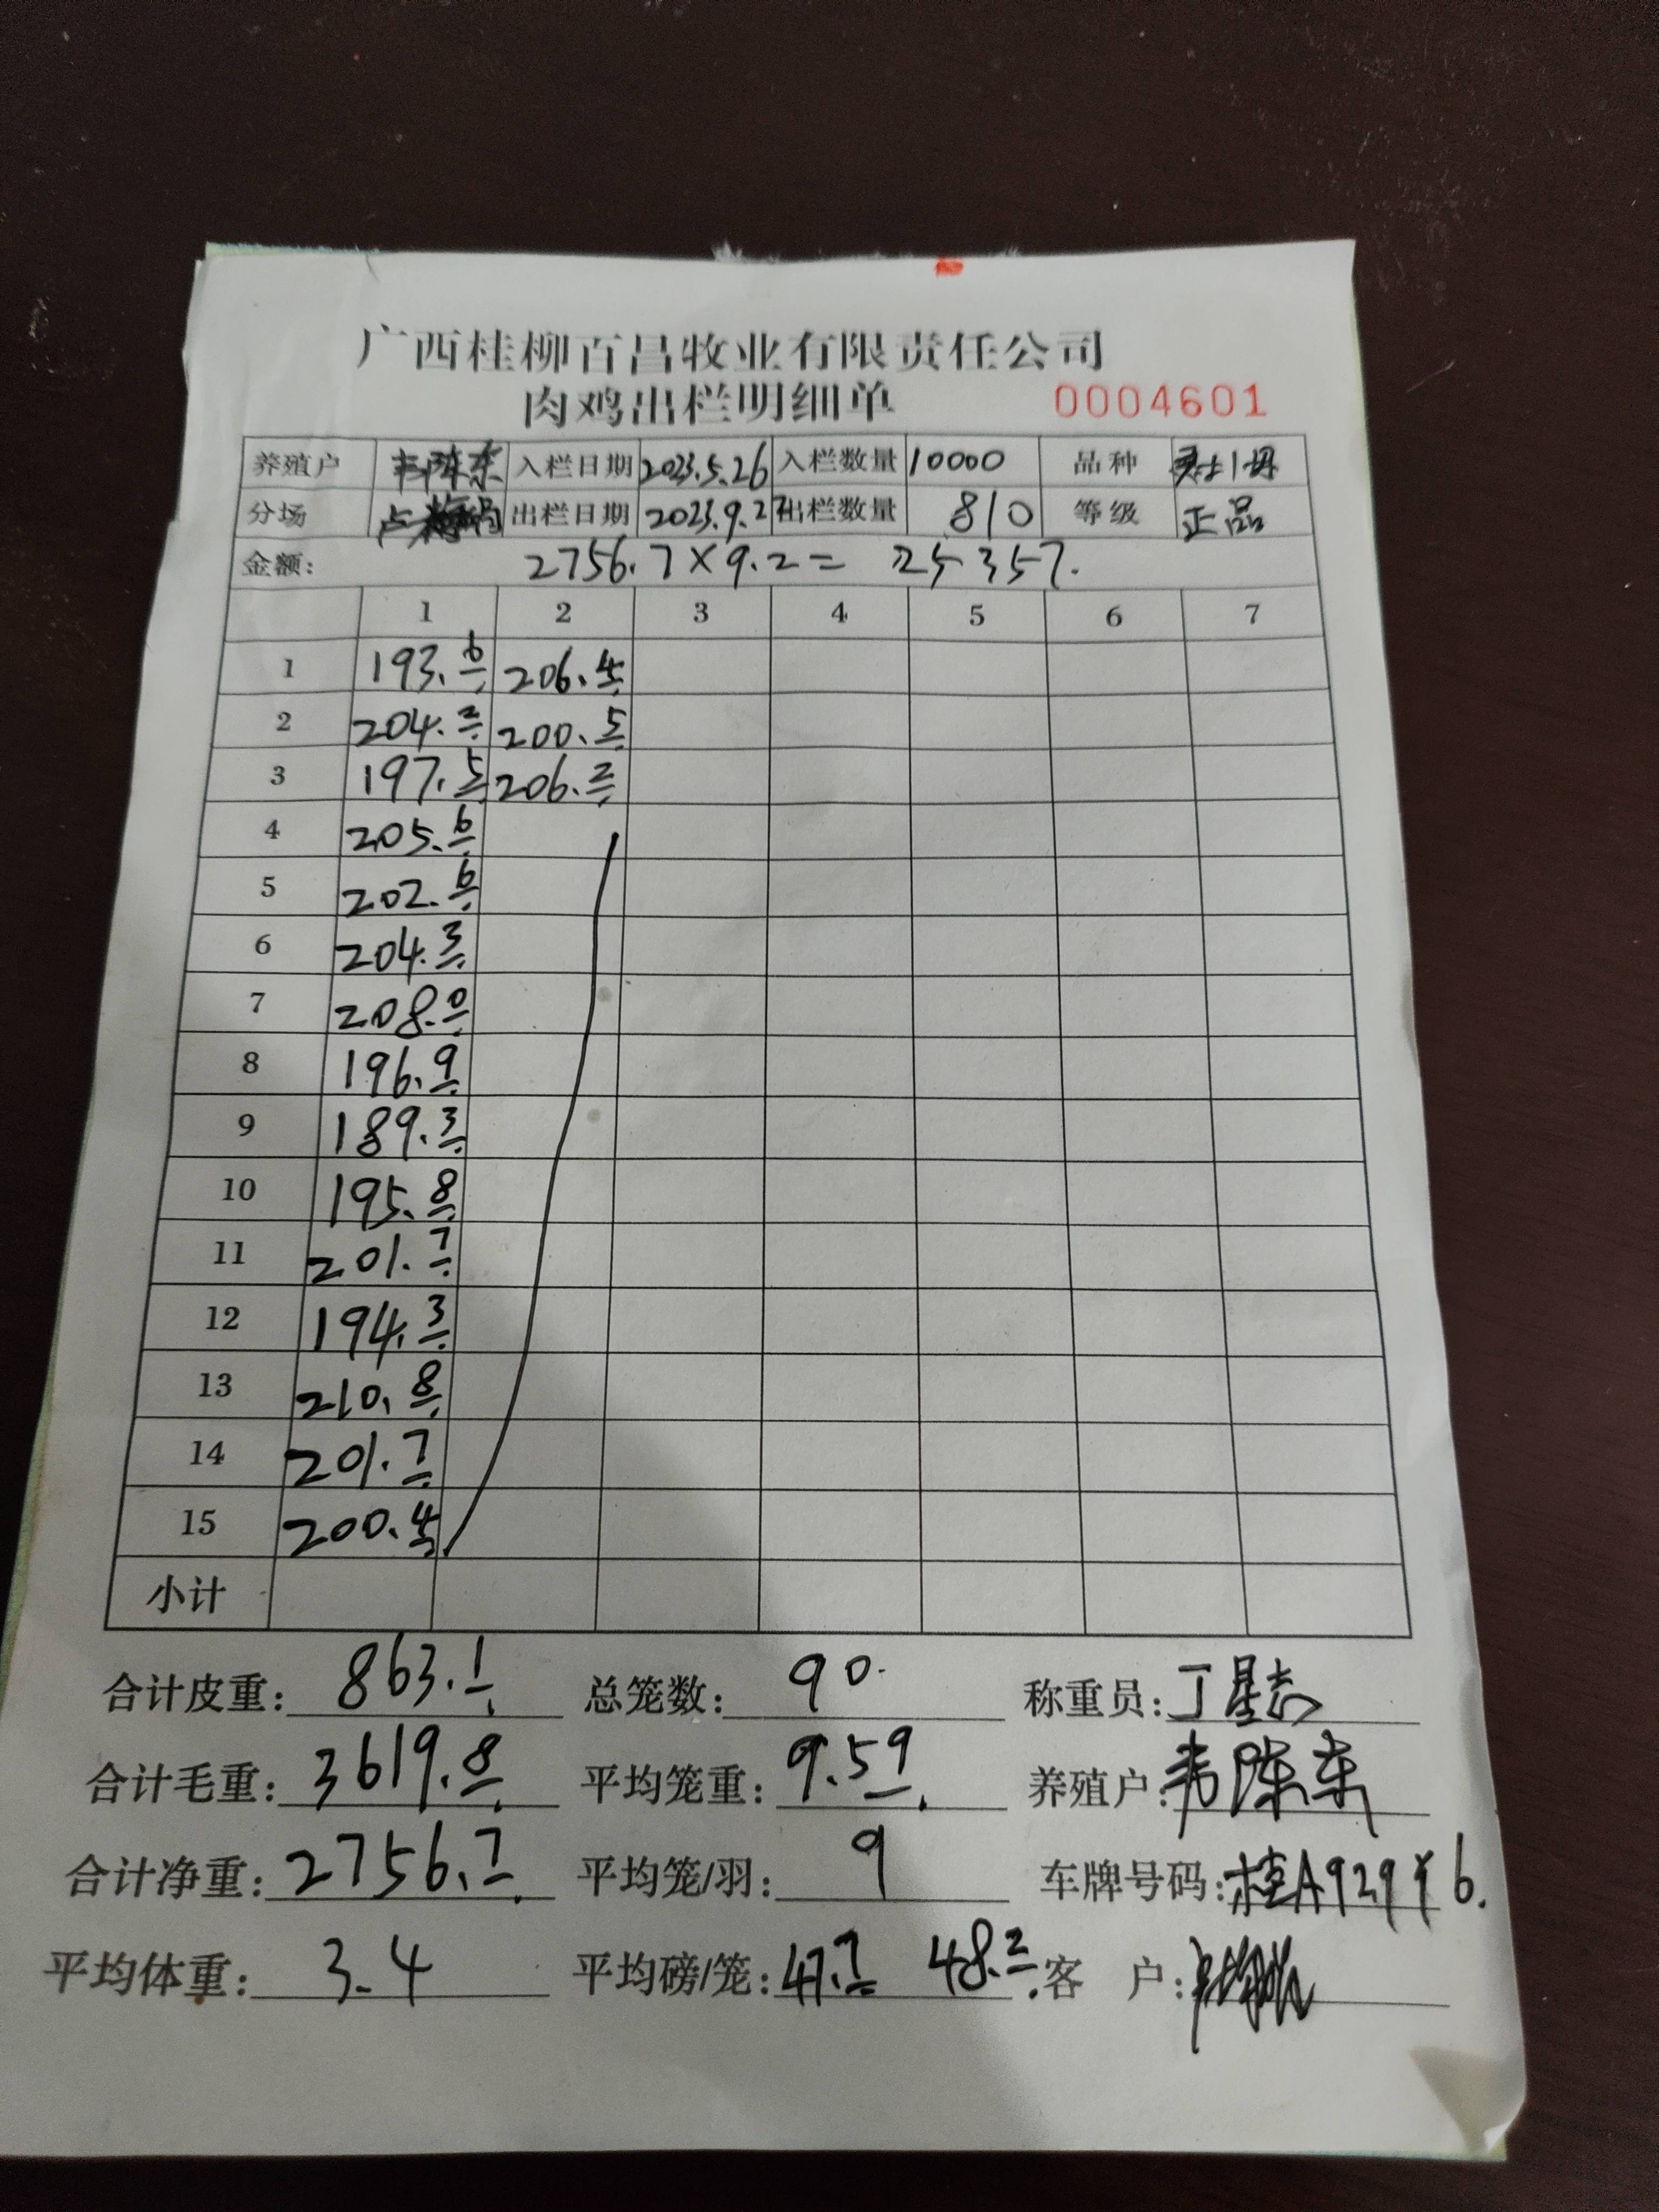 广西桂柳百昌牧业有限责任公司
肉鸡出栏明细单 0004601
养殖户 韦陈东 入栏日期 2023.5.26 入栏数量 10000 品种
分场 出栏日期 2023.9.27 出栏数量 810 等级 正品
金额: 2756.7×9.2= 25357.
1 2 3 4 5 6 7
1 193.6 206.4
2 204.2 200.5
3 197.5 206.2
4 205.6
5 202.6
6 204.3
7 208.0
8 196.9
9 189.3
10 195.8
11 201.7
12 194.3
13 210.8
14 201.7
15 200.4
小计
合计皮重: 863.1 总笼数: 90. 称重员: 丁星志
合计毛重: 3619.8 平均笼重: 9.59 养殖户: 韦陈东
合计净重: 2756.7 平均笼/羽: 9 车牌号码:
平均体重: 3.4 平均磅/笼: 47.7 48.2 客 户: